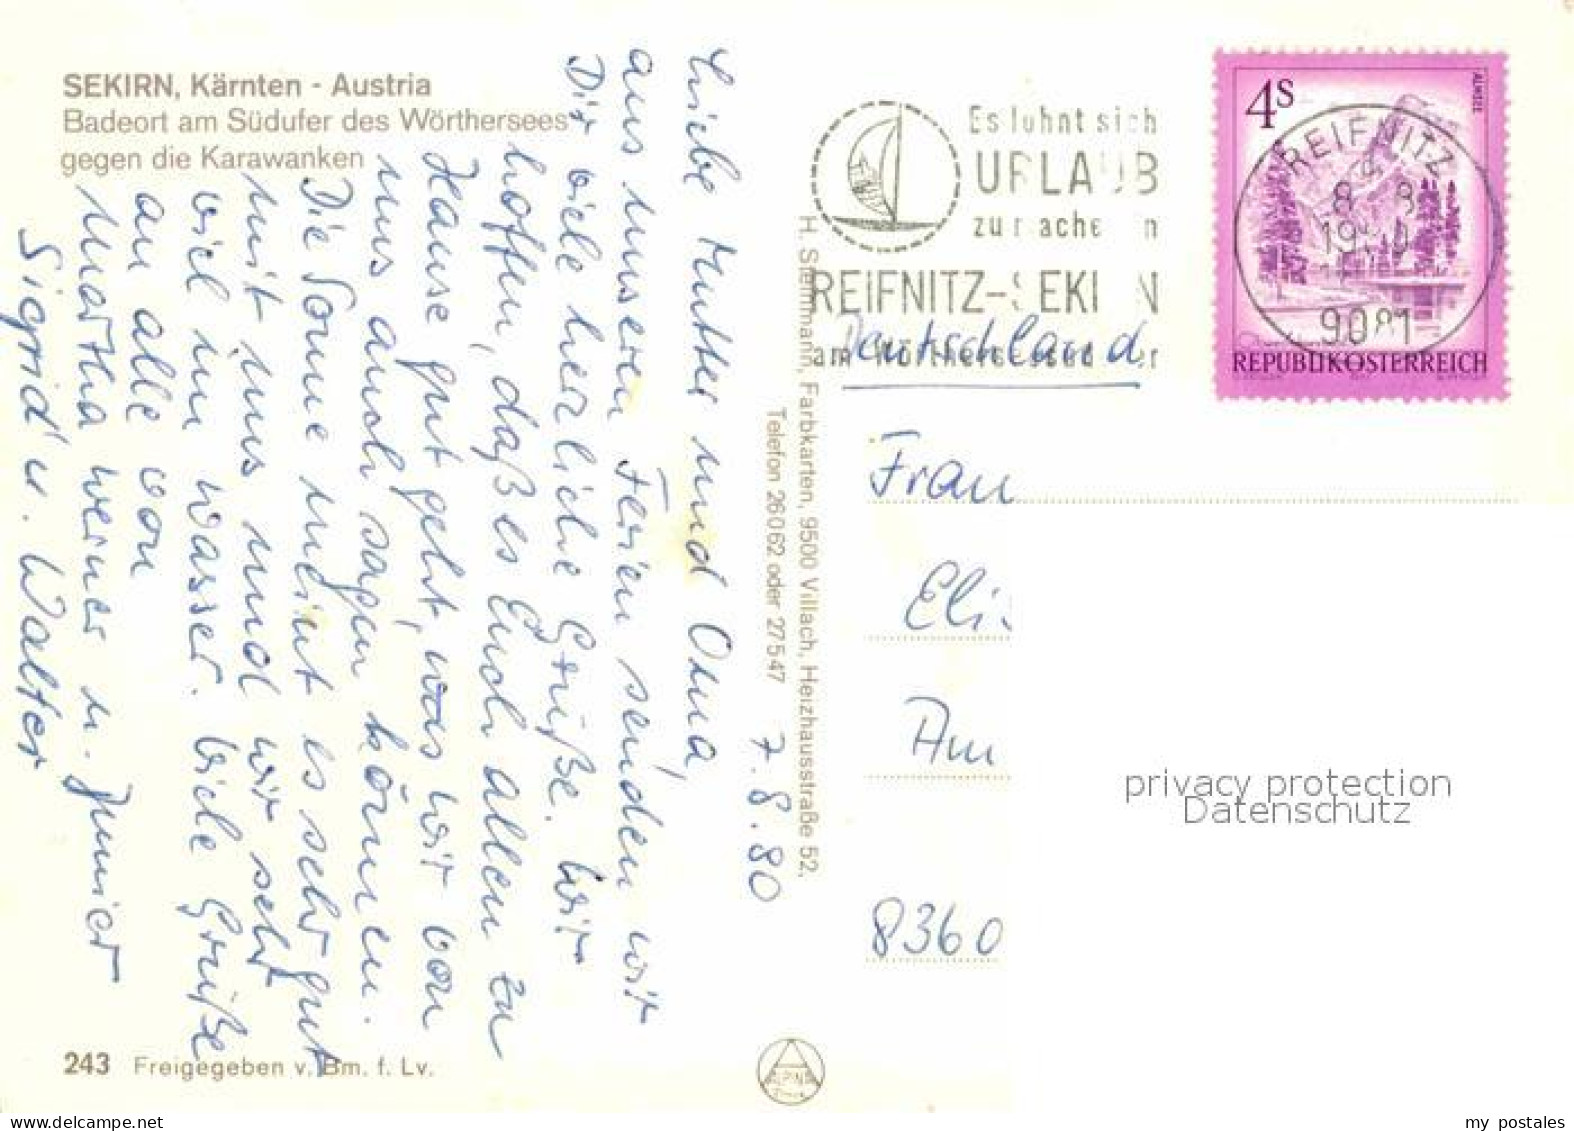 SEKIRN, Kärnten - Austria
Badeort am Südufer des Wörthersees
gegen die Karawanken
Liebe Mutter und Oma,
aus unseren Ferien senden wir
Dir viele herzliche Grüße. Wir
hoffen, daß es Euch allen zu
Hause gut geht, was wir von
uns auch sagen können.
Die Sonne meint es sehr gut
mit uns und wir sehr
viel im Wasser. Viele Grüße
an alle von
Martha Werner u. Junior
Sigrid u. Walter
7.8.80
243 Freigegeben v. Bm. f. Lv.
H. Steinmann, Farbkarten, 9500 Villach, Heizhausstraße 52,
Telefon 26062 oder 27547
Es lohnt sich
URLAUB
zu machen in
REIFNITZ-SEKIRN
am Wörthersee
Deutschland
4S
ALMSEE
REIFNITZ
9081
REPUBLIK ÖSTERREICH
Frau
Eli
Am
8360
ALPINA
privacy protection
Datenschutz
my postales